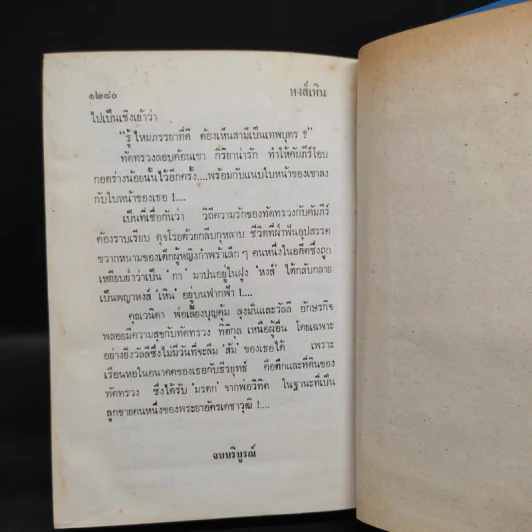 ๑๒๘๐ หงส์เหิน
ไปเป็นเชิงเย้าว่า
"รู้ไหมภรรยาที่ดี ต้องเห็นสามีเป็นเทพบุตร ?"
ทัดทรวงลอบค้อนเขา กิริยาน่ารัก ทำให้คัมภีร์โอบ
กอดร่างน้อยนั้นไว้อีกครั้ง....พร้อมกับแนบใบหน้าของเขาลง
กับใบหน้าของเธอ !....
เป็นที่เชื่อกันว่า วิถีความรักของทัดทรวงกับคัมภีร์
ต้องราบเรียบ ดุจโรยด้วยกลีบกุหลาบ ชีวิตที่ฝ่าฟันอุปสรรค
ขวากหนามของเด็กผู้หญิงกำพร้าเล็ก ๆ คนหนึ่งในอดีตซึ่งถูก
เหยียบย่ำว่าเป็น 'กา' มาปนอยู่ในฝูง 'หงส์' ได้กลับกลาย
เป็นพญาหงส์ 'เหิน' อยู่บนฟากฟ้า !....
คุณเวนิดา พ่อเลี้ยงบุญคุ้ม ลุงมั่นและวัลลี อักษรกิจ
พลอยมีความสุขกับทัดทรวง ทิติกุล เหนือผู้อื่น โดยเฉพาะ
อย่างยิ่งวัลลีซึ่งไม่มีวันที่จะลืม 'ส้ม' ของเธอได้ เพราะ
เรือนหอในอนาคตของเธอกับธีรยุทธ์ คือตึกและที่ดินของ
ทัดทรวง ซึ่งได้รับ 'มรดก' จากพ่อวิทิต ในฐานะที่เป็น
ลูกชายคนหนึ่งของพระยาอัครเดชาวุฒิ !....
จบบริบูรณ์